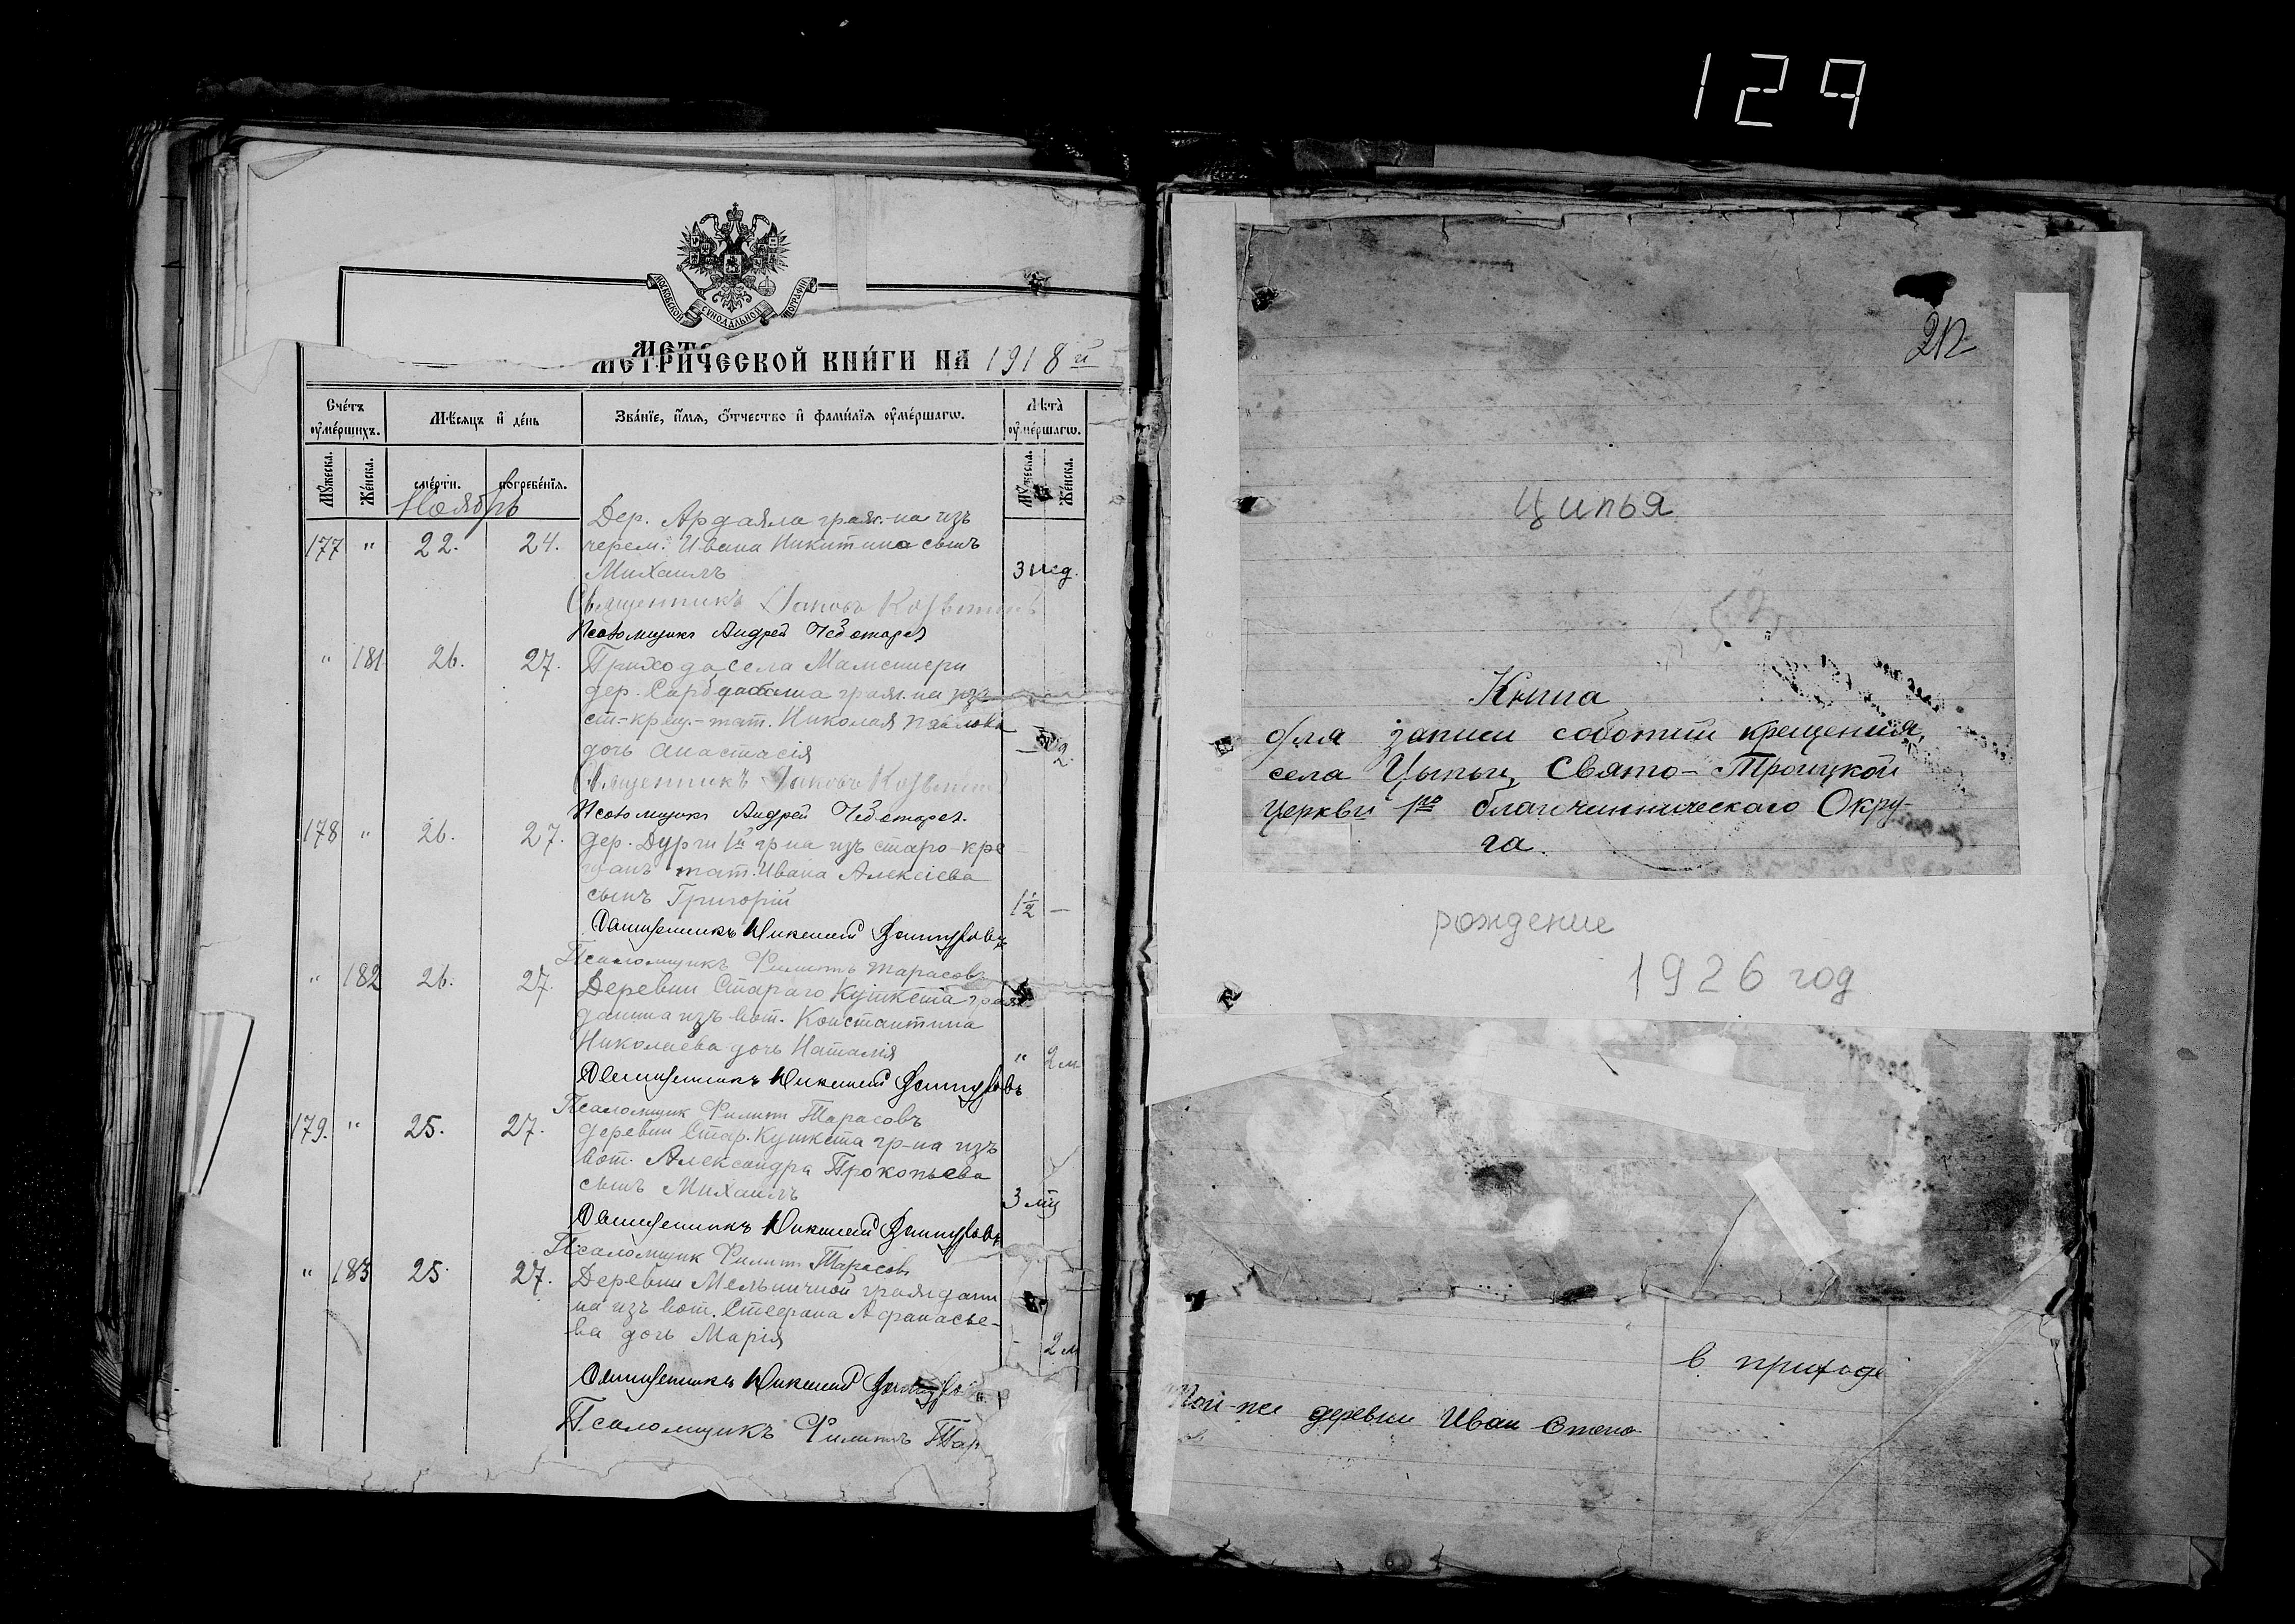 129
МОСКОВСКОЙ СѴНОДАЛЬНОЙ ТИПОГРАФІИ
МЕТРИЧЕСКОЙ КНИГИ НА 1918 й
Счетъ оумершихъ.
Мѣсяцъ и день
Званїе, имя, отчество и фамилїя оумершагω.
Лѣта оумершагω.
Мужеска.
Женска.
смерти.
погребенїя.
Мужеска.
Женска.
Ноябрь
Дер. Ардаяла граж-на изъ
177 " 22. 24. черем. Ивана Никитина сынъ
Михаилъ 3 нед.
Священникъ Іаковъ
Псаломщикъ Андрей Чеботарев
" 181 26. 27. Прихода села Мамсинери
дер. граж-на изъ
ст-крещ.-тат. Николая Павлова
дочь Анастасія — 2.
Священникъ Іаковъ
Псаломщикъ Андрей Чеботарев.
178 " 26. 27. дер. Дурги 1й гр-на изъ старо-кре
щан тат. Ивана Алексіева
сынъ Григорій 1½ —
Священникъ
Псаломщикъ Филиппъ Тарасовъ
" 182 26. 27. Деревни Стараго Кушкета граж
данина изъ вот. Константина
Николаева дочь Наталія " 2 м
Священникъ
Псаломщик Филипп Тарасовъ
179. " 25. 27. деревни Стар. Кушкета гр-на изъ
вот. Александра Прокопьева
сынъ Михаилъ 3 мц
Священникъ
Псаломщик Филипп Тарасовъ
" 183 25 27. Деревни Мельничной граждани
на изъ вот. Стефана Афанасье-
ва дочь Марія - 2 м
Священникъ
Псаломщикъ Филиппъ Тар
212
Ципья
Книга
для записи событий крещения,
села Цыпьи, Свято-Троицкой
церкви 1го благочиннического Окру-
га.
рождение
1926 год
в приходе
Той-же деревни Иван Степа